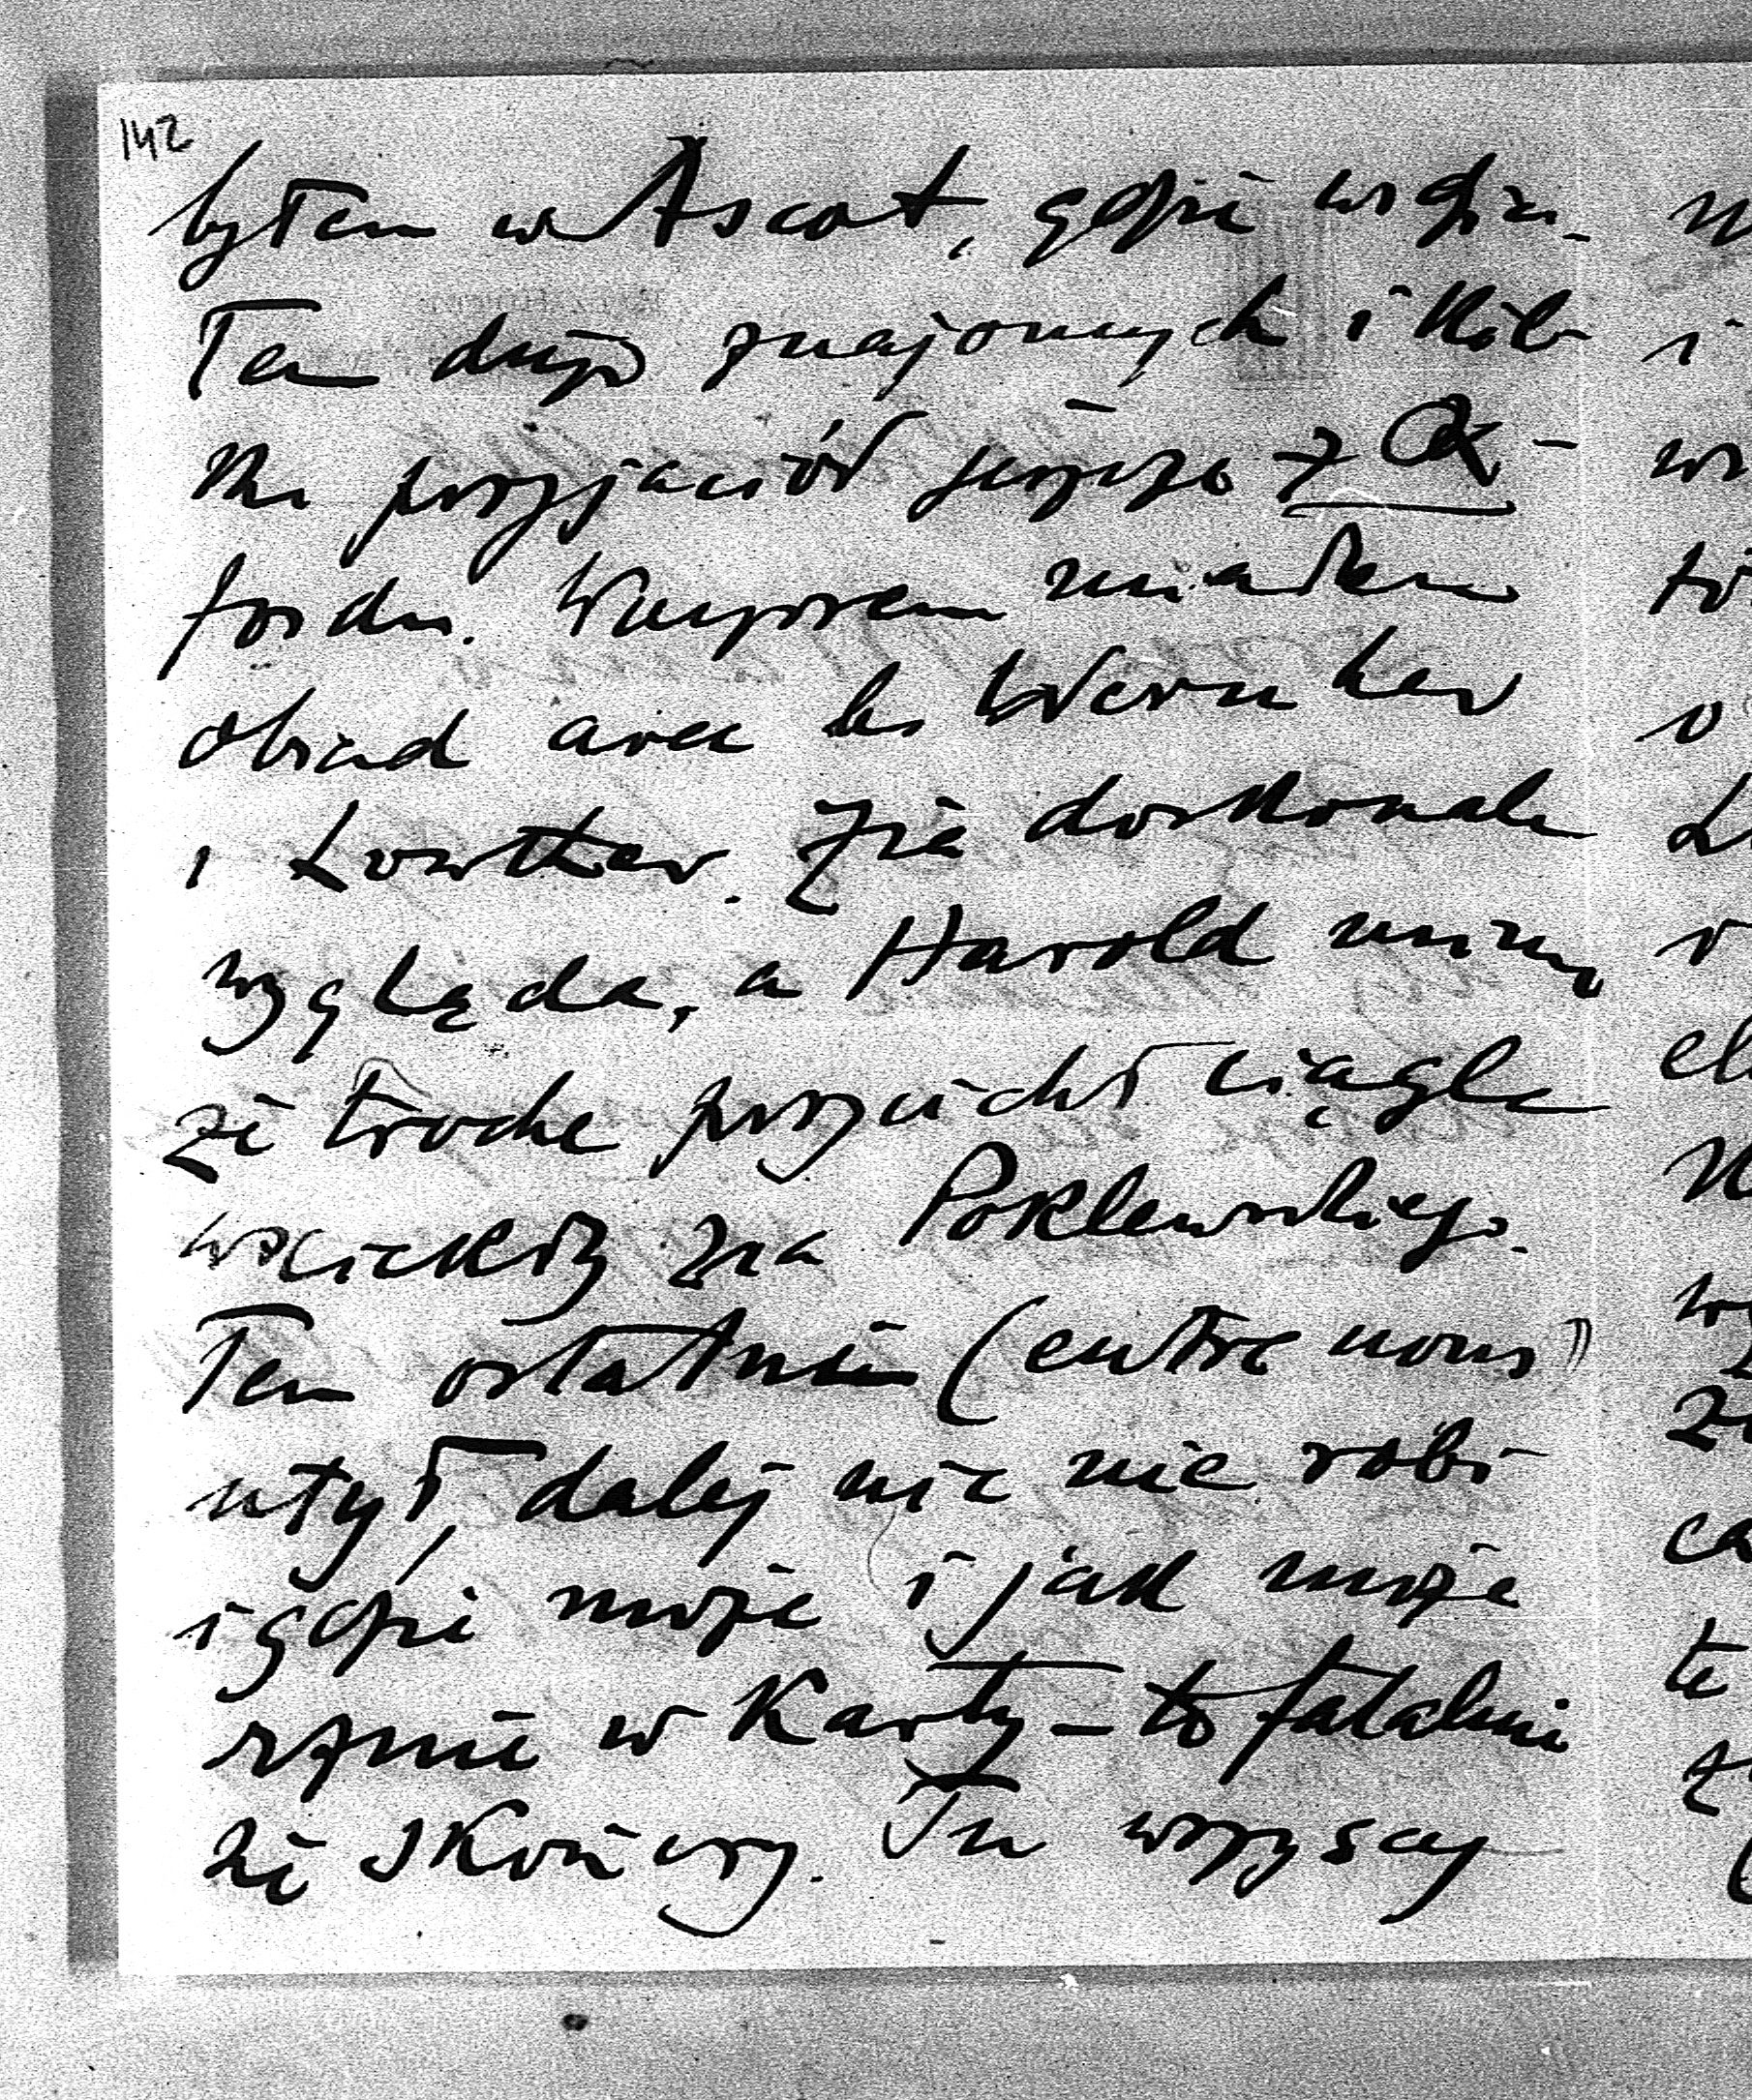 142
byłem w Ascot, gdzie widzia-
łem dużo znajomych i kilk
ku przyjaciół jeszcze z Ox-
fordu. Wieczorem miałem
obiad avec les Wernher
i Lowther. Zia doskonale
wygląda, a Harold mimo
że trochę przycichł ciągle
wściekły na Poklewskiego.
Ten ostatni (entre nous)
utył, dalej nic nie robi
i gdzie może i jak może
rżnie w karty – to fatalnie
się skończy. Tu wszyscy